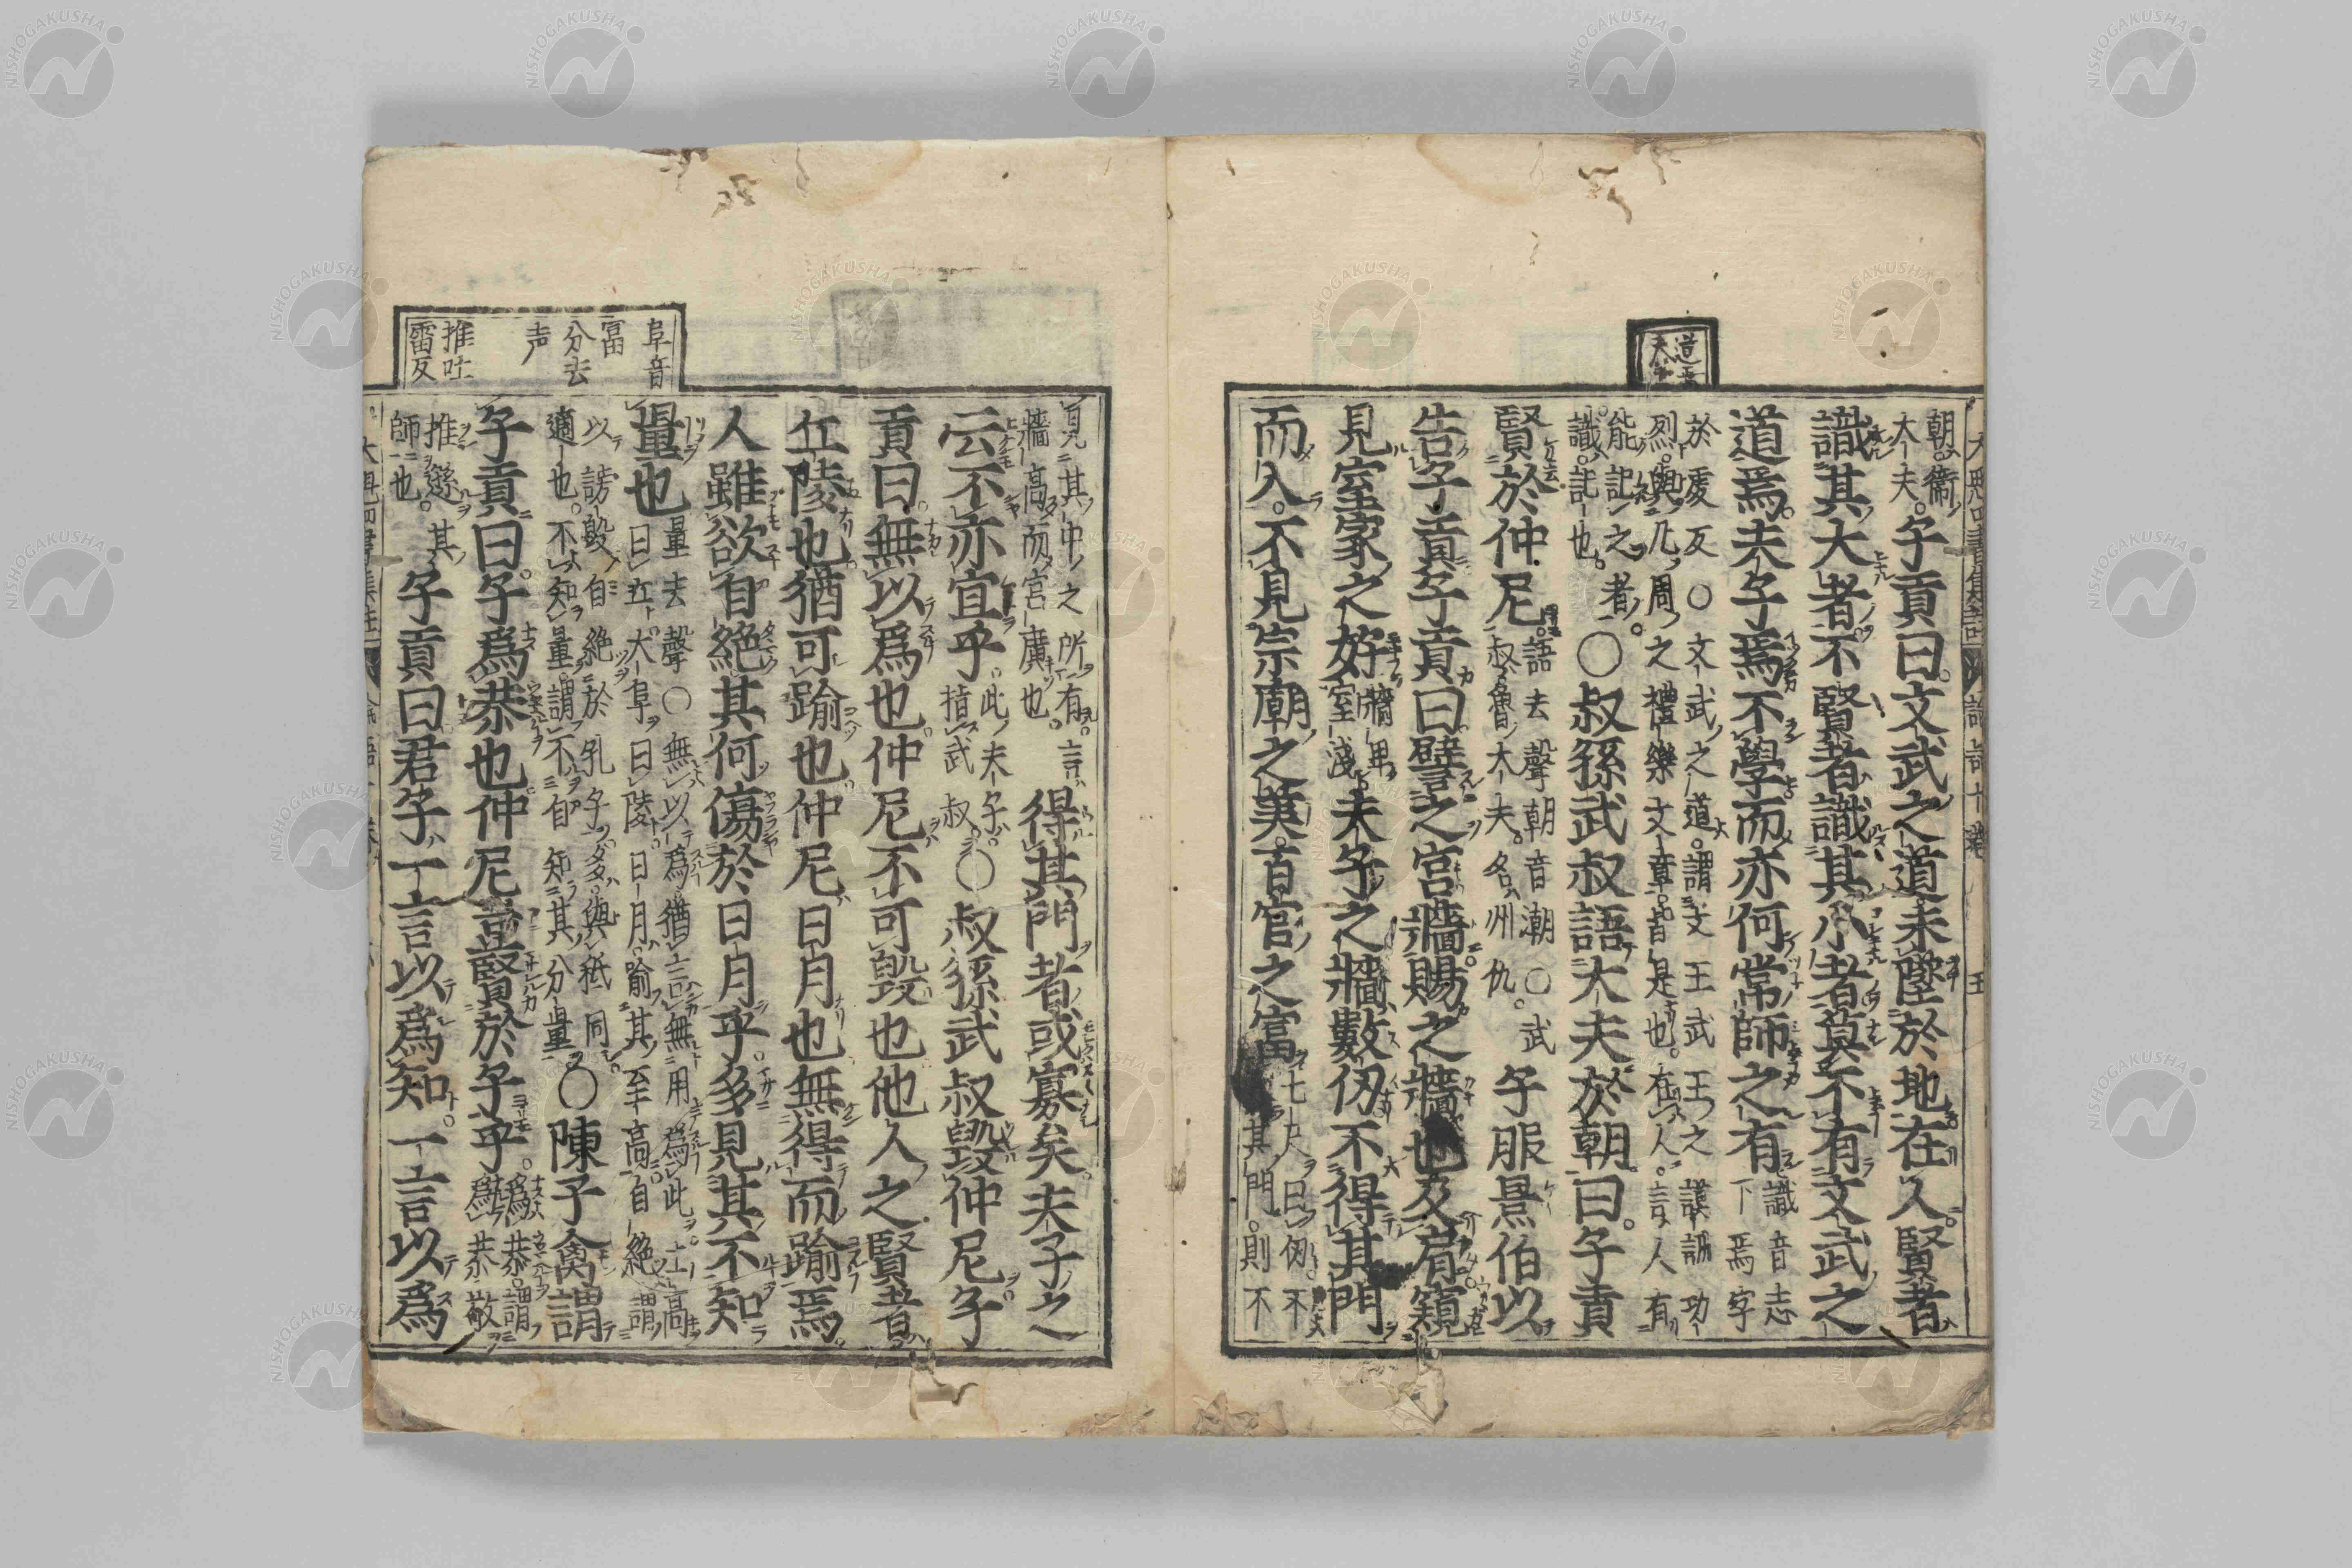 朝衞
大夫。子貢曰。文武之道未墜於地在人賢者
識其大者不賢者識其小者莫不有文武之
道焉。夫子焉不學而亦何常師之有識音志
下焉字
於虔反○文武之道。謂文王武王之謨訓功
烈。與凡周之禮樂文章。皆是也。在人。言人有
能記之者。
識。記也。○叔孫武叔語大夫於朝曰。子貢
賢於仲尼語去聲朝音潮○武
叔魯大夫。名州仇。子服景伯以
告子貢子貢曰譬之宮牆賜之牆也及肩窺
見室家之好牆卑
室淺夫子之牆數仞不得其門
而入。不見宗廟之美。百官之富七尺曰仞不
其門。則不
見其中之所有。言
牆高而宮廣也。得其門者或寡矣夫子之
云不亦宜乎。此夫子。
指武叔○叔孫武叔毀仲尼子
貢曰無以爲也仲尼不可毀也他人之賢者
丘陵也。猶可踰也仲尼日月也無得而踰焉
人雖欲自絕其何傷於日月乎。多見其不知
量也量去聲○無以爲猶言無用爲此。土高
曰丘大阜曰陵日月。喻其至高。自絕謂
以謗毀自絕於孔子。多與祗同。
適也。不知量。謂不自知其分量。○陳子禽謂
子貢曰。子爲恭也仲尼豈賢於子乎。爲恭。謂
爲恭敬
推遜其
師也。子貢曰君子一言以爲知。一言以爲
阜音
富
分去
声
推吐
雷反